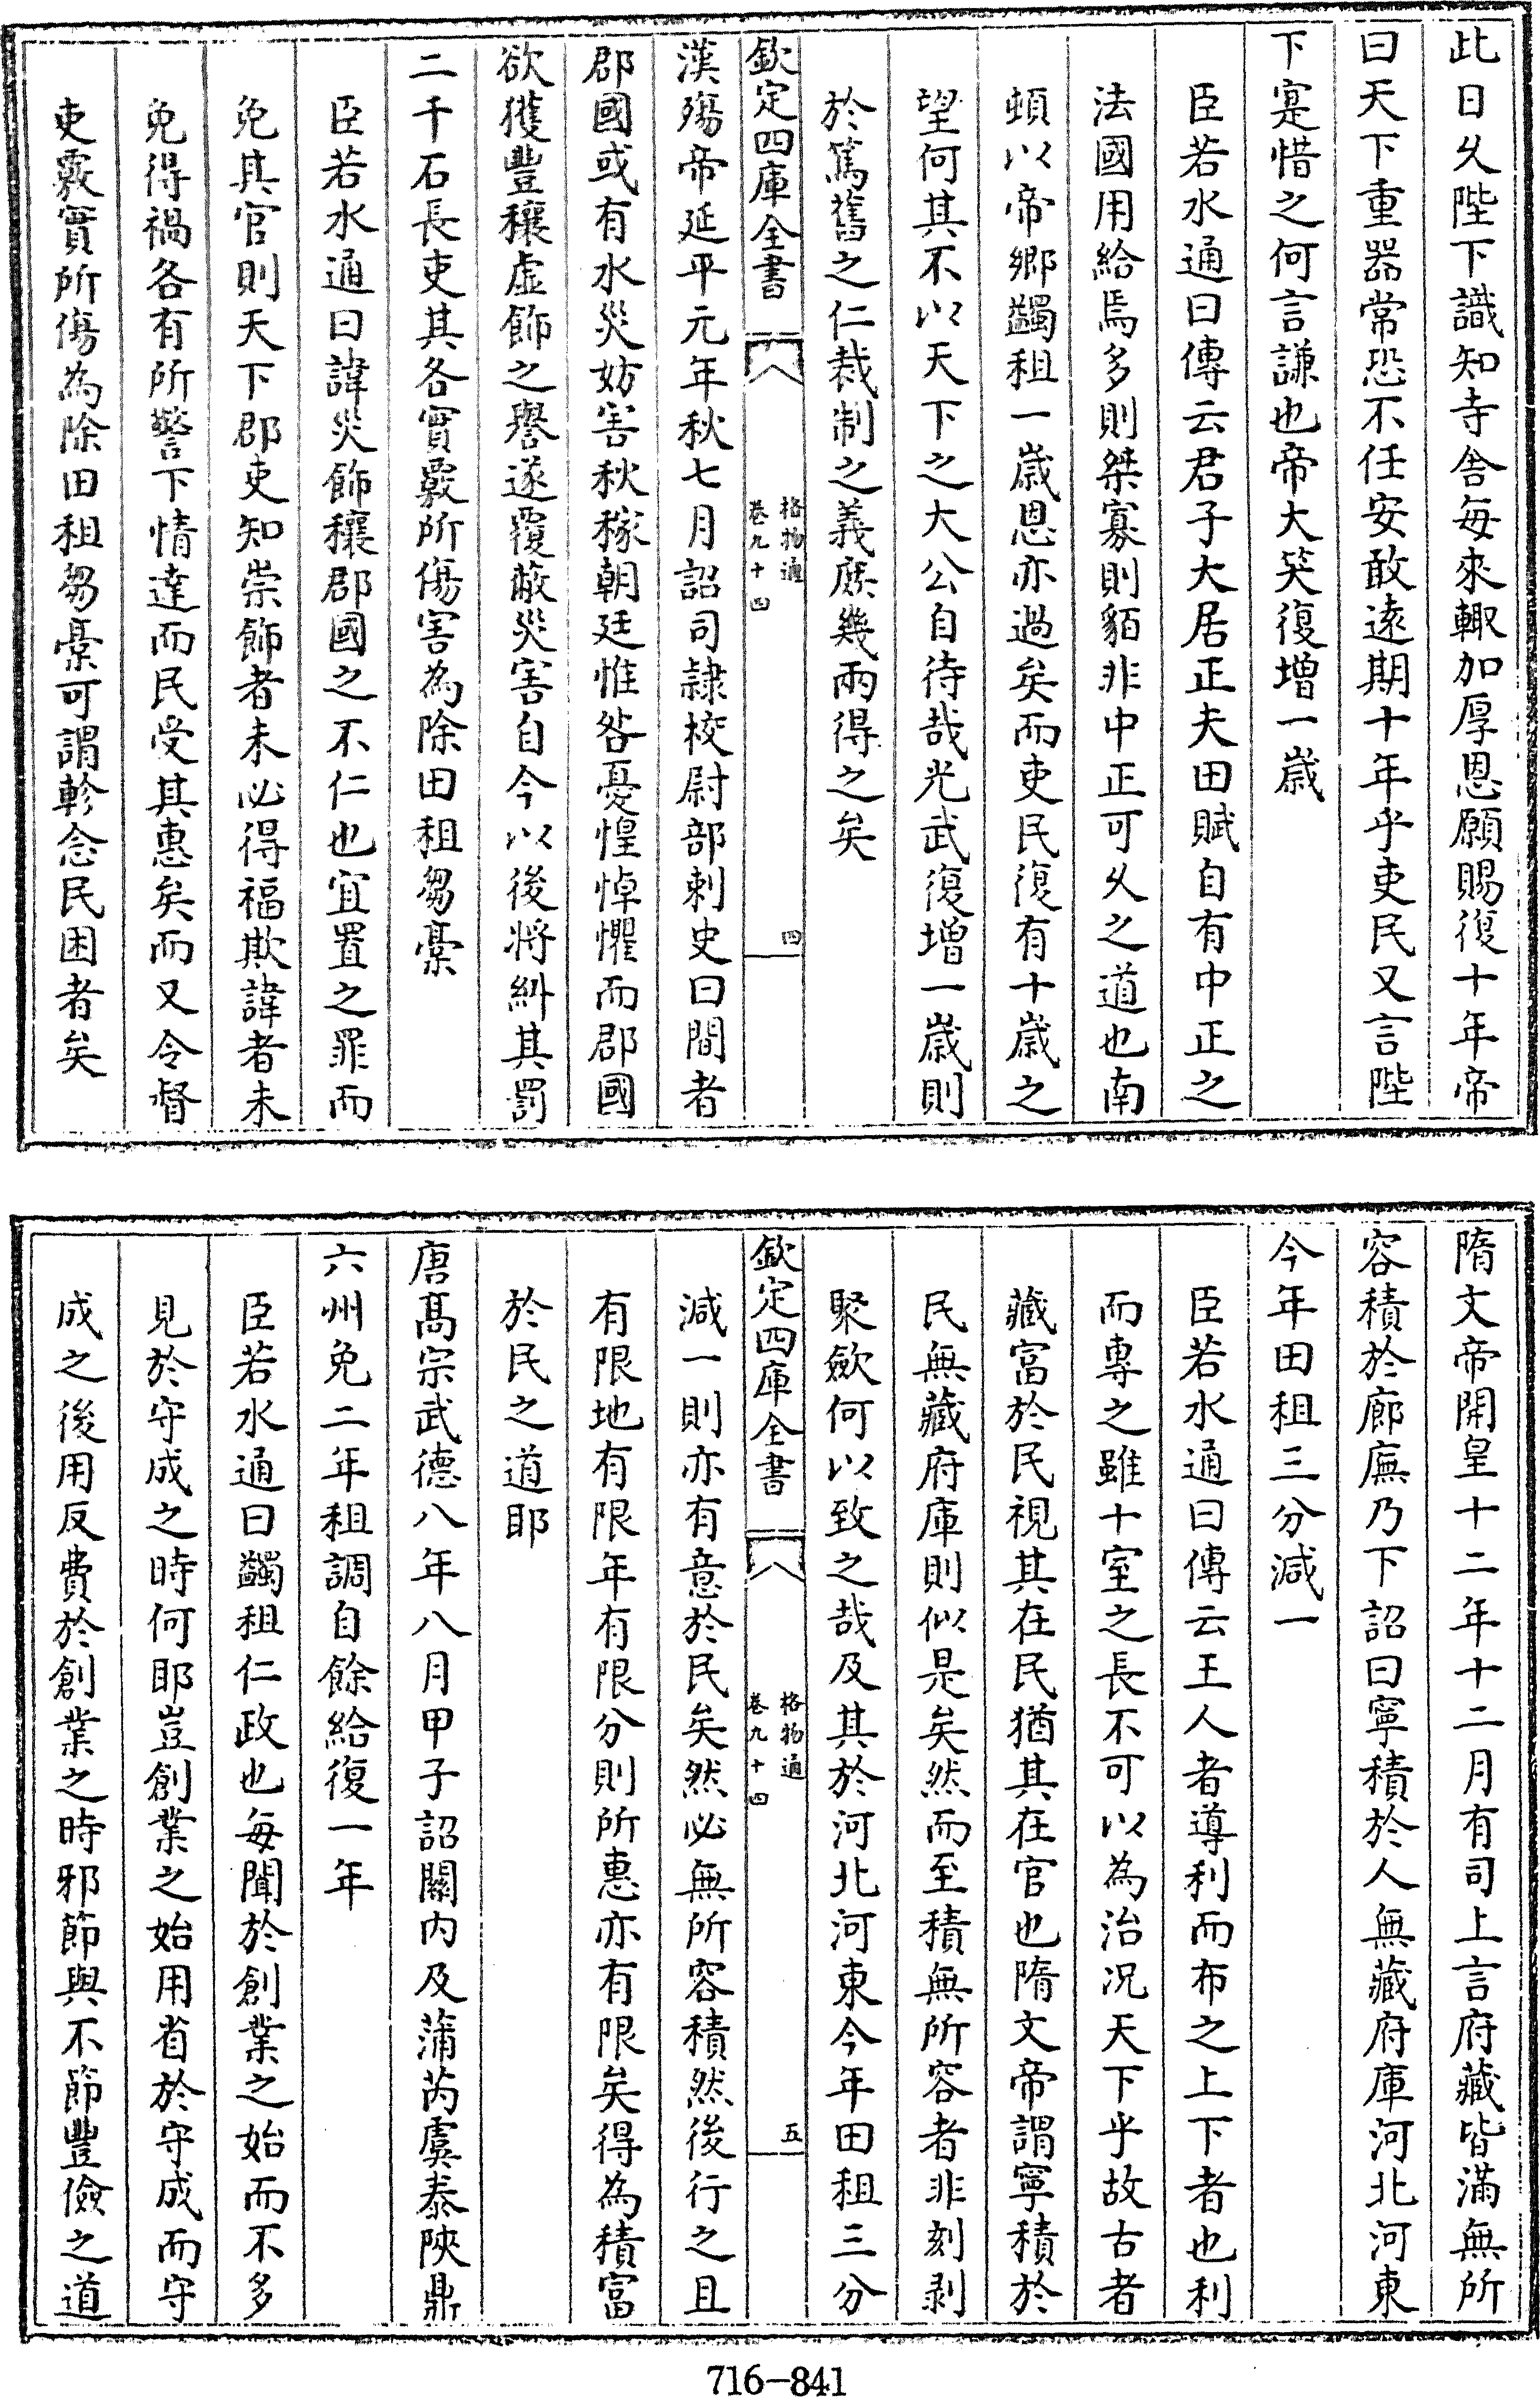 此日乆陛下識知寺舎每來輙加厚恩願賜復十年帝
曰天下重器常恐不任安敢逺期十年乎吏民又言陛
下寔惜之何言謙也帝大笑復增一歲
臣若水通曰傳云君子大居正夫田賦自有中正之
法國用給焉多則桀寡則貊非中正可乆之道也南
頓以帝鄉蠲租一歲恩亦過矣而吏民復有十歲之
望何其不以天下之大公自待哉光武復增一歲則
於篤舊之仁裁制之義庶幾兩得之矣
欽定四庫全書
格物通
卷九十四
四
漢殤帝延平元年秋七月詔司隷校尉部刺史曰間者
郡國或有水災妨害秋稼朝廷惟咎憂惶悼懼而郡國
欲獲豐穰虛飾之譽遂覆蔽災害自今以後將糾其罰
二千石長吏其各實覈所傷害為除田租芻稾
臣若水通曰諱災飾穰郡國之不仁也宜置之罪而
免其官則天下郡吏知崇飾者未必得福欺諱者未
免得禍各有所警下情達而民受其惠矣而又令督
吏覈實所傷為除田租芻稾可謂軫念民困者矣
隋文帝開皇十二年十二月有司上言府藏皆滿無所
容積於廊廡乃下詔曰寧積於人無藏府庫河北河東
今年田租三分減一
臣若水通曰傳云王人者導利而布之上下者也利
而專之雖十室之長不可以為治况天下乎故古者
藏富於民視其在民猶其在官也隋文帝謂寧積於
民無藏府庫則似是矣然而至積無所容者非刻剥
聚歛何以致之哉及其於河北河東今年田租三分
欽定四庫全書
格物通
卷九十四
五
減一則亦有意於民矣然必無所容積然後行之且
有限地有限年有限分則所惠亦有限矣得為積富
於民之道耶
唐髙宗武德八年八月甲子詔關内及蒲芮虞泰陝鼎
六州免二年租調自餘給復一年
臣若水通曰蠲租仁政也每聞於創業之始而不多
見於守成之時何耶豈創業之始用省於守成而守
成之後用反費於創業之時邪節與不節豐儉之道
716-841